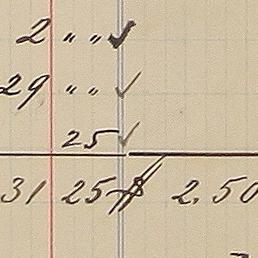 2 " " ✓
29 " " ✓
25 ✓
31 25 # 2.50